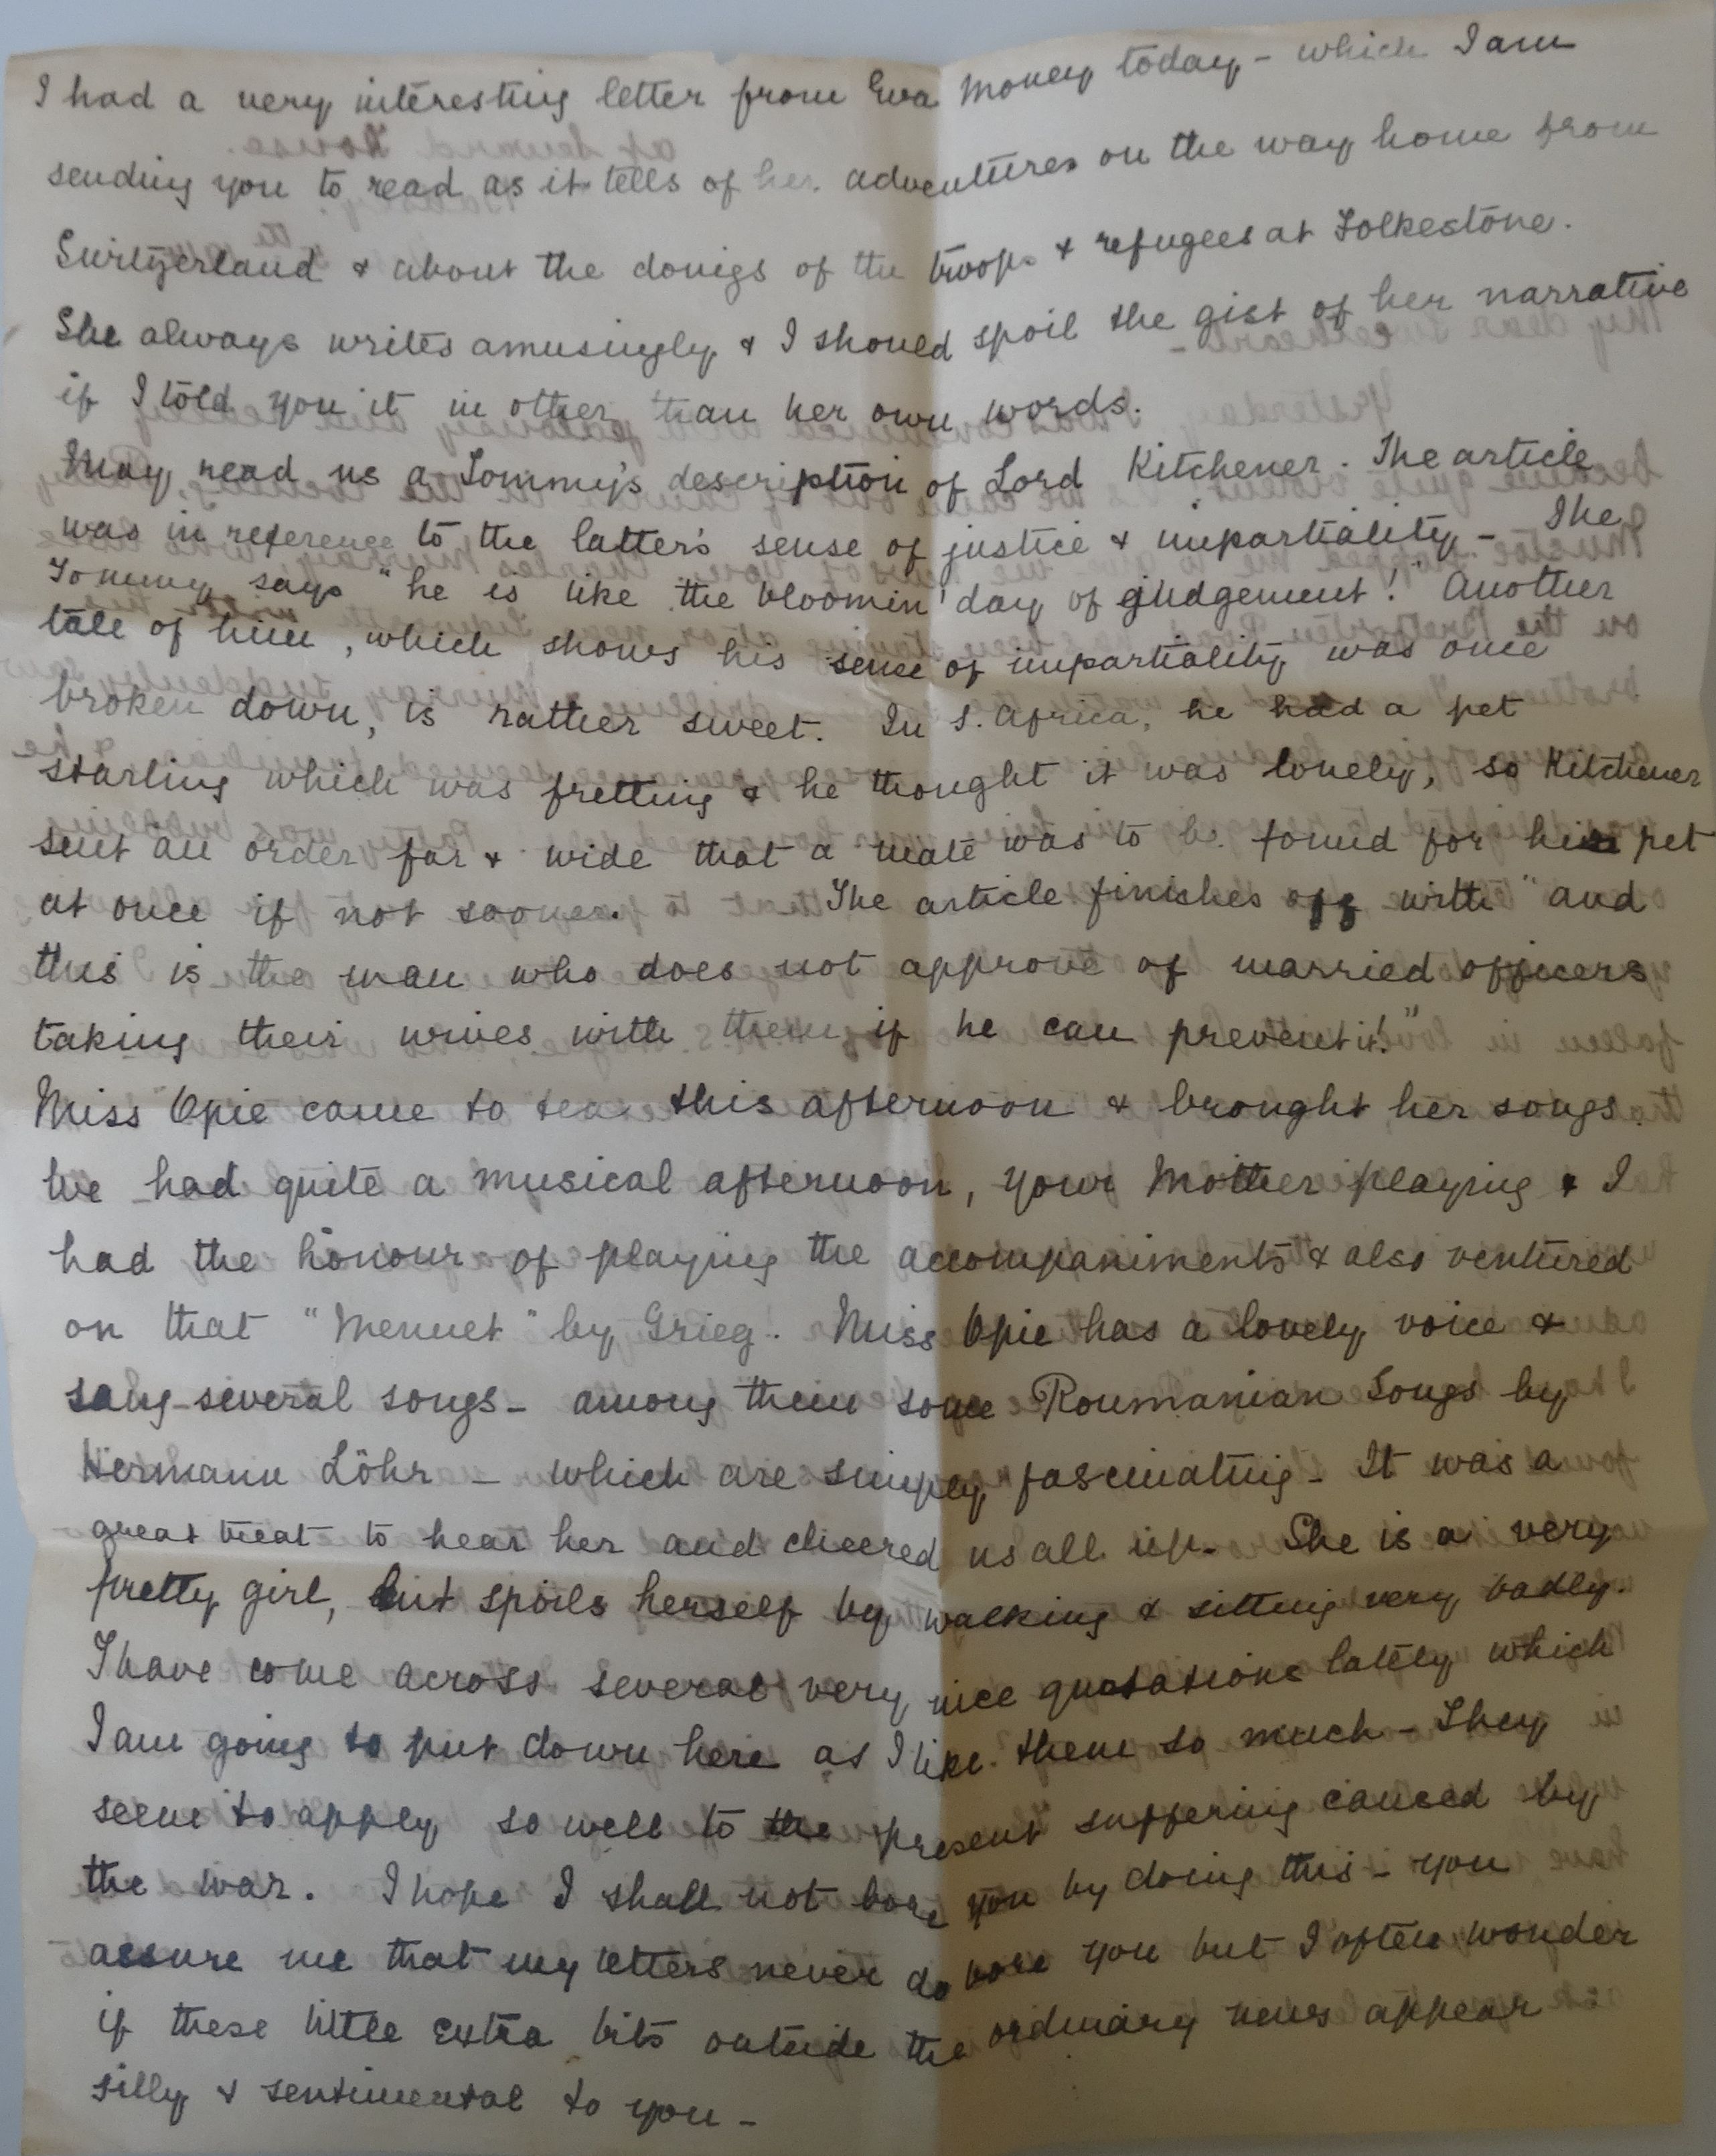 I had a very interesting letter from Eva Money today - which I am
sending you to read as it tells of her adventures on the way home from
Switzerland & about the doings of the troops & refugees at Folkestone.
She always writes amusingly & I should spoil the gist of her narrative
if I told you it in other than her own words.
May read us a Tommy's description of Lord Kitchener. The article
was in reference to the latter's sense of justice & impartiality - The
Tommy says "he is like the bloomin' day of judgement!" Another
tale of him, which shows his sense of impartiality was once
broken down, is rather sweet. In S. Africa, he had a pet
starling which was fretting & he thought it was lonely, so Kitchener
sent an order far & wide that a mate was to be found for his pet
at once if not sooner. The article finishes off with "and
this is the man who does not approve of married officers
taking their wives with them if he can prevent it!"
Miss Opie came to tea this afternoon & brought her songs.
We had quite a musical afternoon, your Mother playing & I
had the honour of playing the accompaniments & also ventured
on that "Menuet" by Grieg. Miss Opie has a lovely voice &
sang several songs - among them some Roumanian Songs by
Hermann Löhr - which are simply fascinating - It was a
great treat to hear her and cheered us all up. She is a very
pretty girl, but spoils herself by walking & sitting very badly.
I have come across several very nice quotations lately which
I am going to put down here as I like them so much - They
seem to apply so well to the present suffering caused by
the war. I hope I shall not bore you by doing this - you
assure me that my letters never do bore you but I often wonder
if these little extra bits outside the ordinary news appear
silly & sentimental to you -